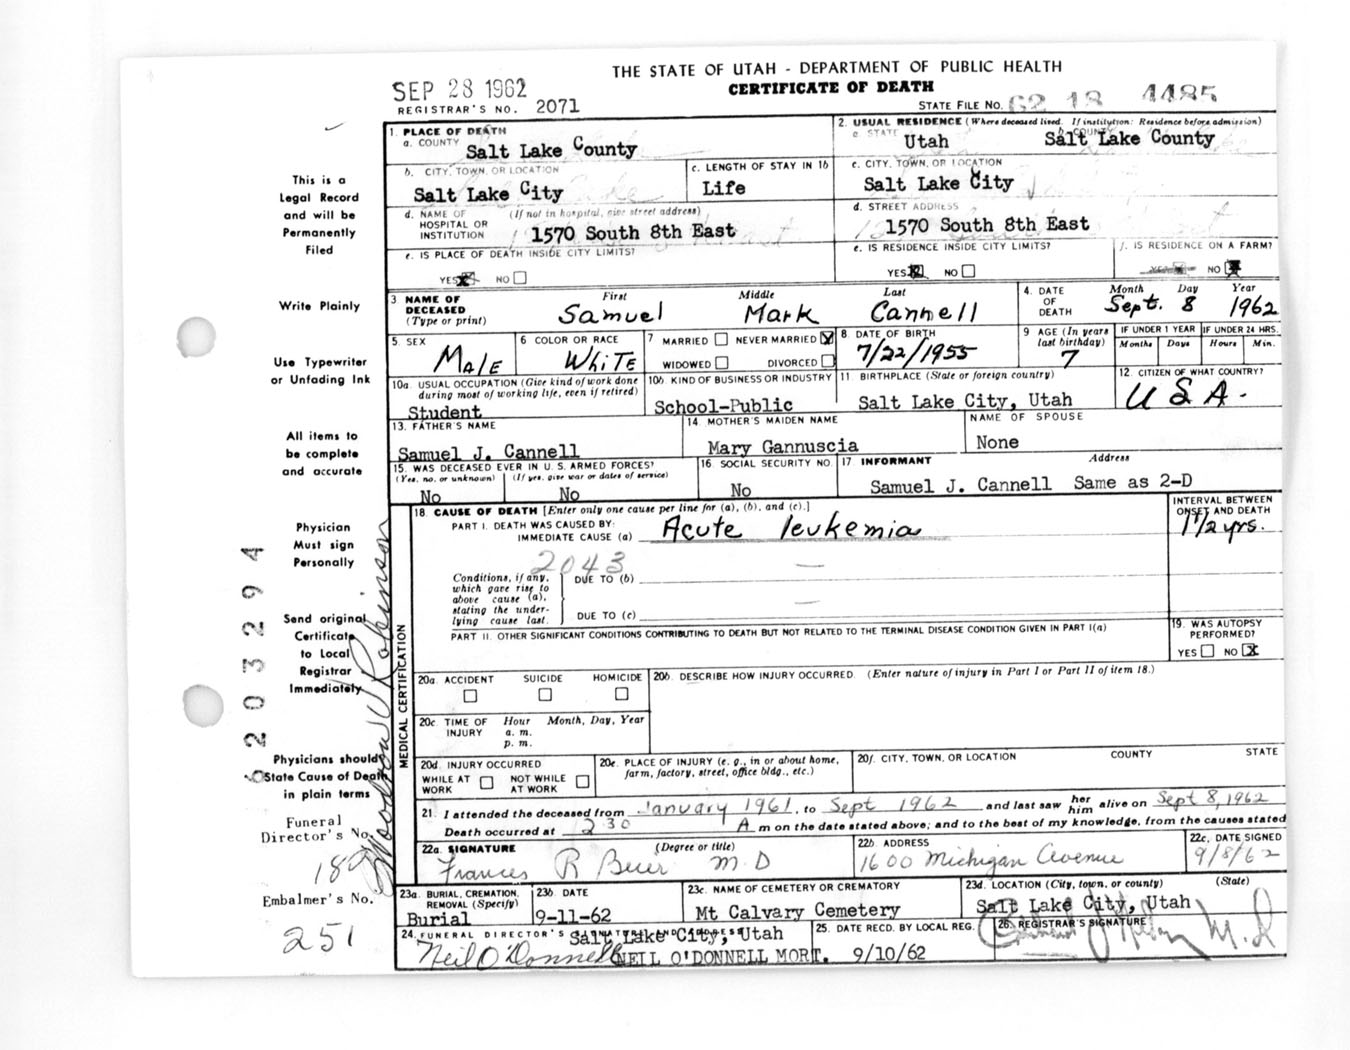 THE STATE OF UTAH - DEPARTMENT OF PUBLIC HEALTH
CERTIFICATE OF DEATH
SEP 28 1962
REGISTRAR'S NO. 2071
STATE FILE NO. 62 18 4485
1. PLACE OF DEATH
a. COUNTY Salt Lake County
2. USUAL RESIDENCE (Where deceased lived. If institution: Residence before admission)
a. STATE Utah b. COUNTY Salt Lake County
b. CITY, TOWN, OR LOCATION Salt Lake City
c. LENGTH OF STAY IN 1b Life
c. CITY, TOWN, OR LOCATION Salt Lake City
d. NAME OF HOSPITAL OR INSTITUTION (If not in hospital, give street address) 1570 South 8th East
d. STREET ADDRESS 1570 South 8th East
e. IS PLACE OF DEATH INSIDE CITY LIMITS? YES NO
e. IS RESIDENCE INSIDE CITY LIMITS? YES NO
f. IS RESIDENCE ON A FARM? YES NO
3. NAME OF DECEASED (Type or print) First Samuel Middle Mark Last Cannell
4. DATE OF DEATH Month Sept. Day 8 Year 1962
5. SEX Male
6 COLOR OR RACE White
7 MARRIED NEVER MARRIED WIDOWED DIVORCED
8 DATE OF BIRTH 7/22/1955
9 AGE (In years last birthday) 7
IF UNDER 1 YEAR Months Days
IF UNDER 24 HRS. Hours Min.
10a. USUAL OCCUPATION (Give kind of work done during most of working life, even if retired) Student
10b. KIND OF BUSINESS OR INDUSTRY School-Public
11 BIRTHPLACE (State or foreign country) Salt Lake City, Utah
12. CITIZEN OF WHAT COUNTRY? U S A.
13. FATHER'S NAME Samuel J. Cannell
14. MOTHER'S MAIDEN NAME Mary Gannuscia
NAME OF SPOUSE None
15. WAS DECEASED EVER IN U. S. ARMED FORCES?
(Yes, no, or unknown) No
(If yes, give war or dates of service) No
16 SOCIAL SECURITY NO. No
17 INFORMANT Address
Samuel J. Cannell Same as 2-D
MEDICAL CERTIFICATION
18. CAUSE OF DEATH [Enter only one cause per line for (a), (b), and (c).]
INTERVAL BETWEEN ONSET AND DEATH
PART I. DEATH WAS CAUSED BY:
IMMEDIATE CAUSE (a) Acute leukemia
1 1/2 yrs.
2043
Conditions, if any, which gave rise to above cause (a), stating the underlying cause last.
DUE TO (b) —
DUE TO (c) —
PART II. OTHER SIGNIFICANT CONDITIONS CONTRIBUTING TO DEATH BUT NOT RELATED TO THE TERMINAL DISEASE CONDITION GIVEN IN PART I(a)
19. WAS AUTOPSY PERFORMED? YES NO X
20a. ACCIDENT SUICIDE HOMICIDE
20b. DESCRIBE HOW INJURY OCCURRED. (Enter nature of injury in Part I or Part II of item 18.)
20c. TIME OF INJURY Hour a. m. p. m. Month, Day, Year
20d. INJURY OCCURRED WHILE AT WORK NOT WHILE AT WORK
20e. PLACE OF INJURY (e. g., in or about home, farm, factory, street, office bldg., etc.)
20f. CITY, TOWN, OR LOCATION COUNTY STATE
21. I attended the deceased from January 1961, to Sept 1962 and last saw her him alive on Sept 8, 1962
Death occurred at 2 30 A m on the date stated above; and to the best of my knowledge, from the causes stated
22a. SIGNATURE (Degree or title) Frances R Beier M D
22b. ADDRESS 1600 Michigan Avenue
22c. DATE SIGNED 9/8/62
23a. BURIAL, CREMATION, REMOVAL (Specify) Burial
23b. DATE 9-11-62
23c. NAME OF CEMETERY OR CREMATORY Mt Calvary Cemetery
23d. LOCATION (City, town, or county) (State) Salt Lake City, Utah
24. FUNERAL DIRECTOR'S Salt Lake City, Utah
Neil O'Donnell NEIL O'DONNELL MORT.
25. DATE RECD. BY LOCAL REG. 9/10/62
26. REGISTRAR'S SIGNATURE M. D
This is a
Legal Record
and will be
Permanently
Filed
Write Plainly
Use Typewriter
or Unfading Ink
All items to
be complete
and accurate
Physician
Must sign
Personally
Send original
Certificate
to Local
Registrar
Immediately
Physicians should
State Cause of Death
in plain terms
Funeral
Director's No.
189
Embalmer's No.
251
203294
Woodrow J Robinson